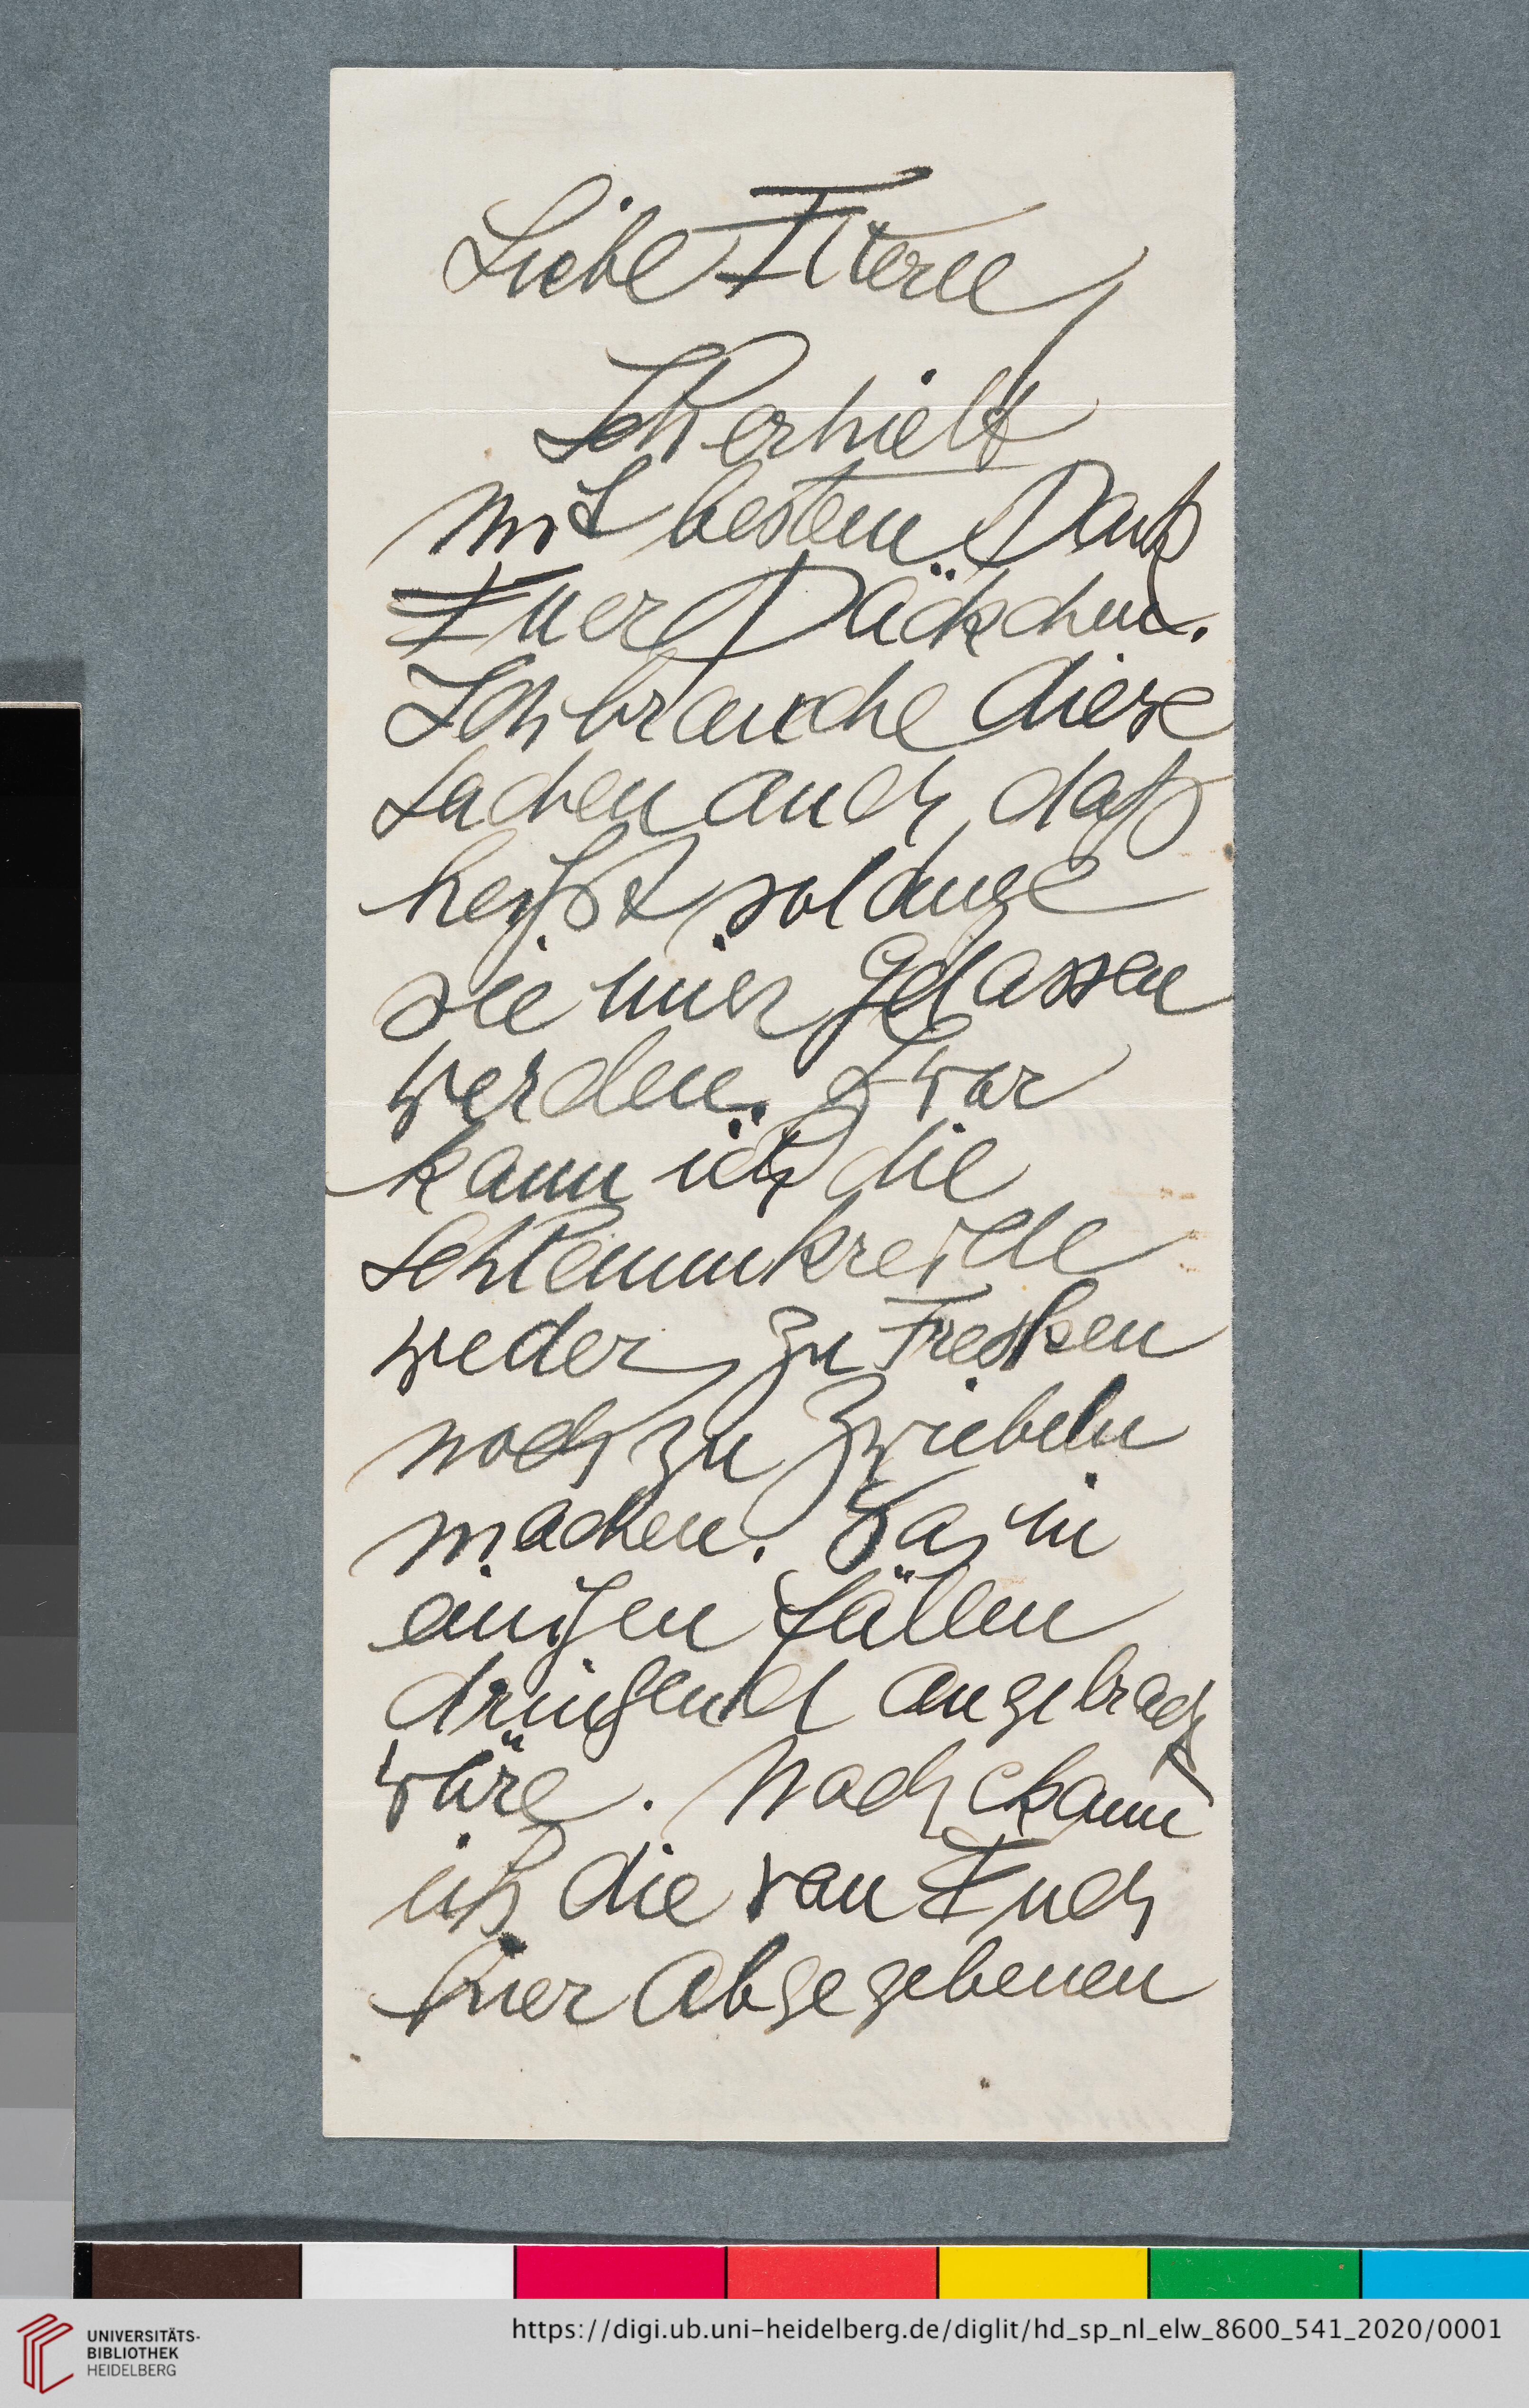 Liebe Eltern,
Ich erhielt
mit bestem Dank
Euer Päckchen.
Ich brauche diese
Sachen auch, daß
heißt solange
sie mir gelassen
werden. Zwar
kann ich die
Schlemmkreide
weder zu Fresken
noch zu Zwiebeln
machen. Was in
einigen Fällen
dringend angebracht
wäre. Noch kann
ich die von Euch
hier abgegebenen
UNIVERSITÄTS-
BIBLIOTHEK
HEIDELBERG
https://digi.ub.uni-heidelberg.de/diglit/hd_sp_nl_elw_8600_541_2020/0001